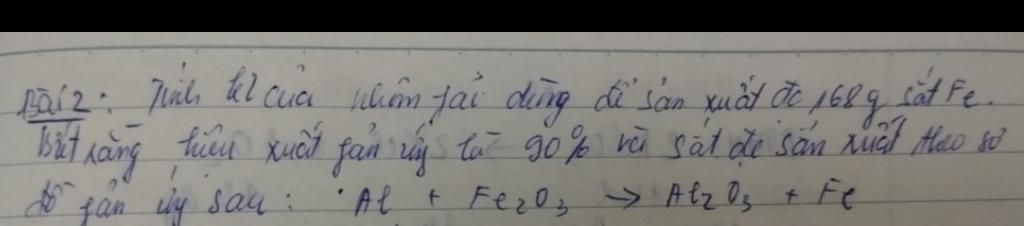 Bài 2: Tính kl của nhôm fải dùng để sản xuất đc 168g sắt Fe.
Biết rằng hiệu xuất fản ứng là 90% và sắt đc sản xuất theo sơ
đồ fản ứng sau: Al + Fe₂O₃ → Al₂O₃ + Fe